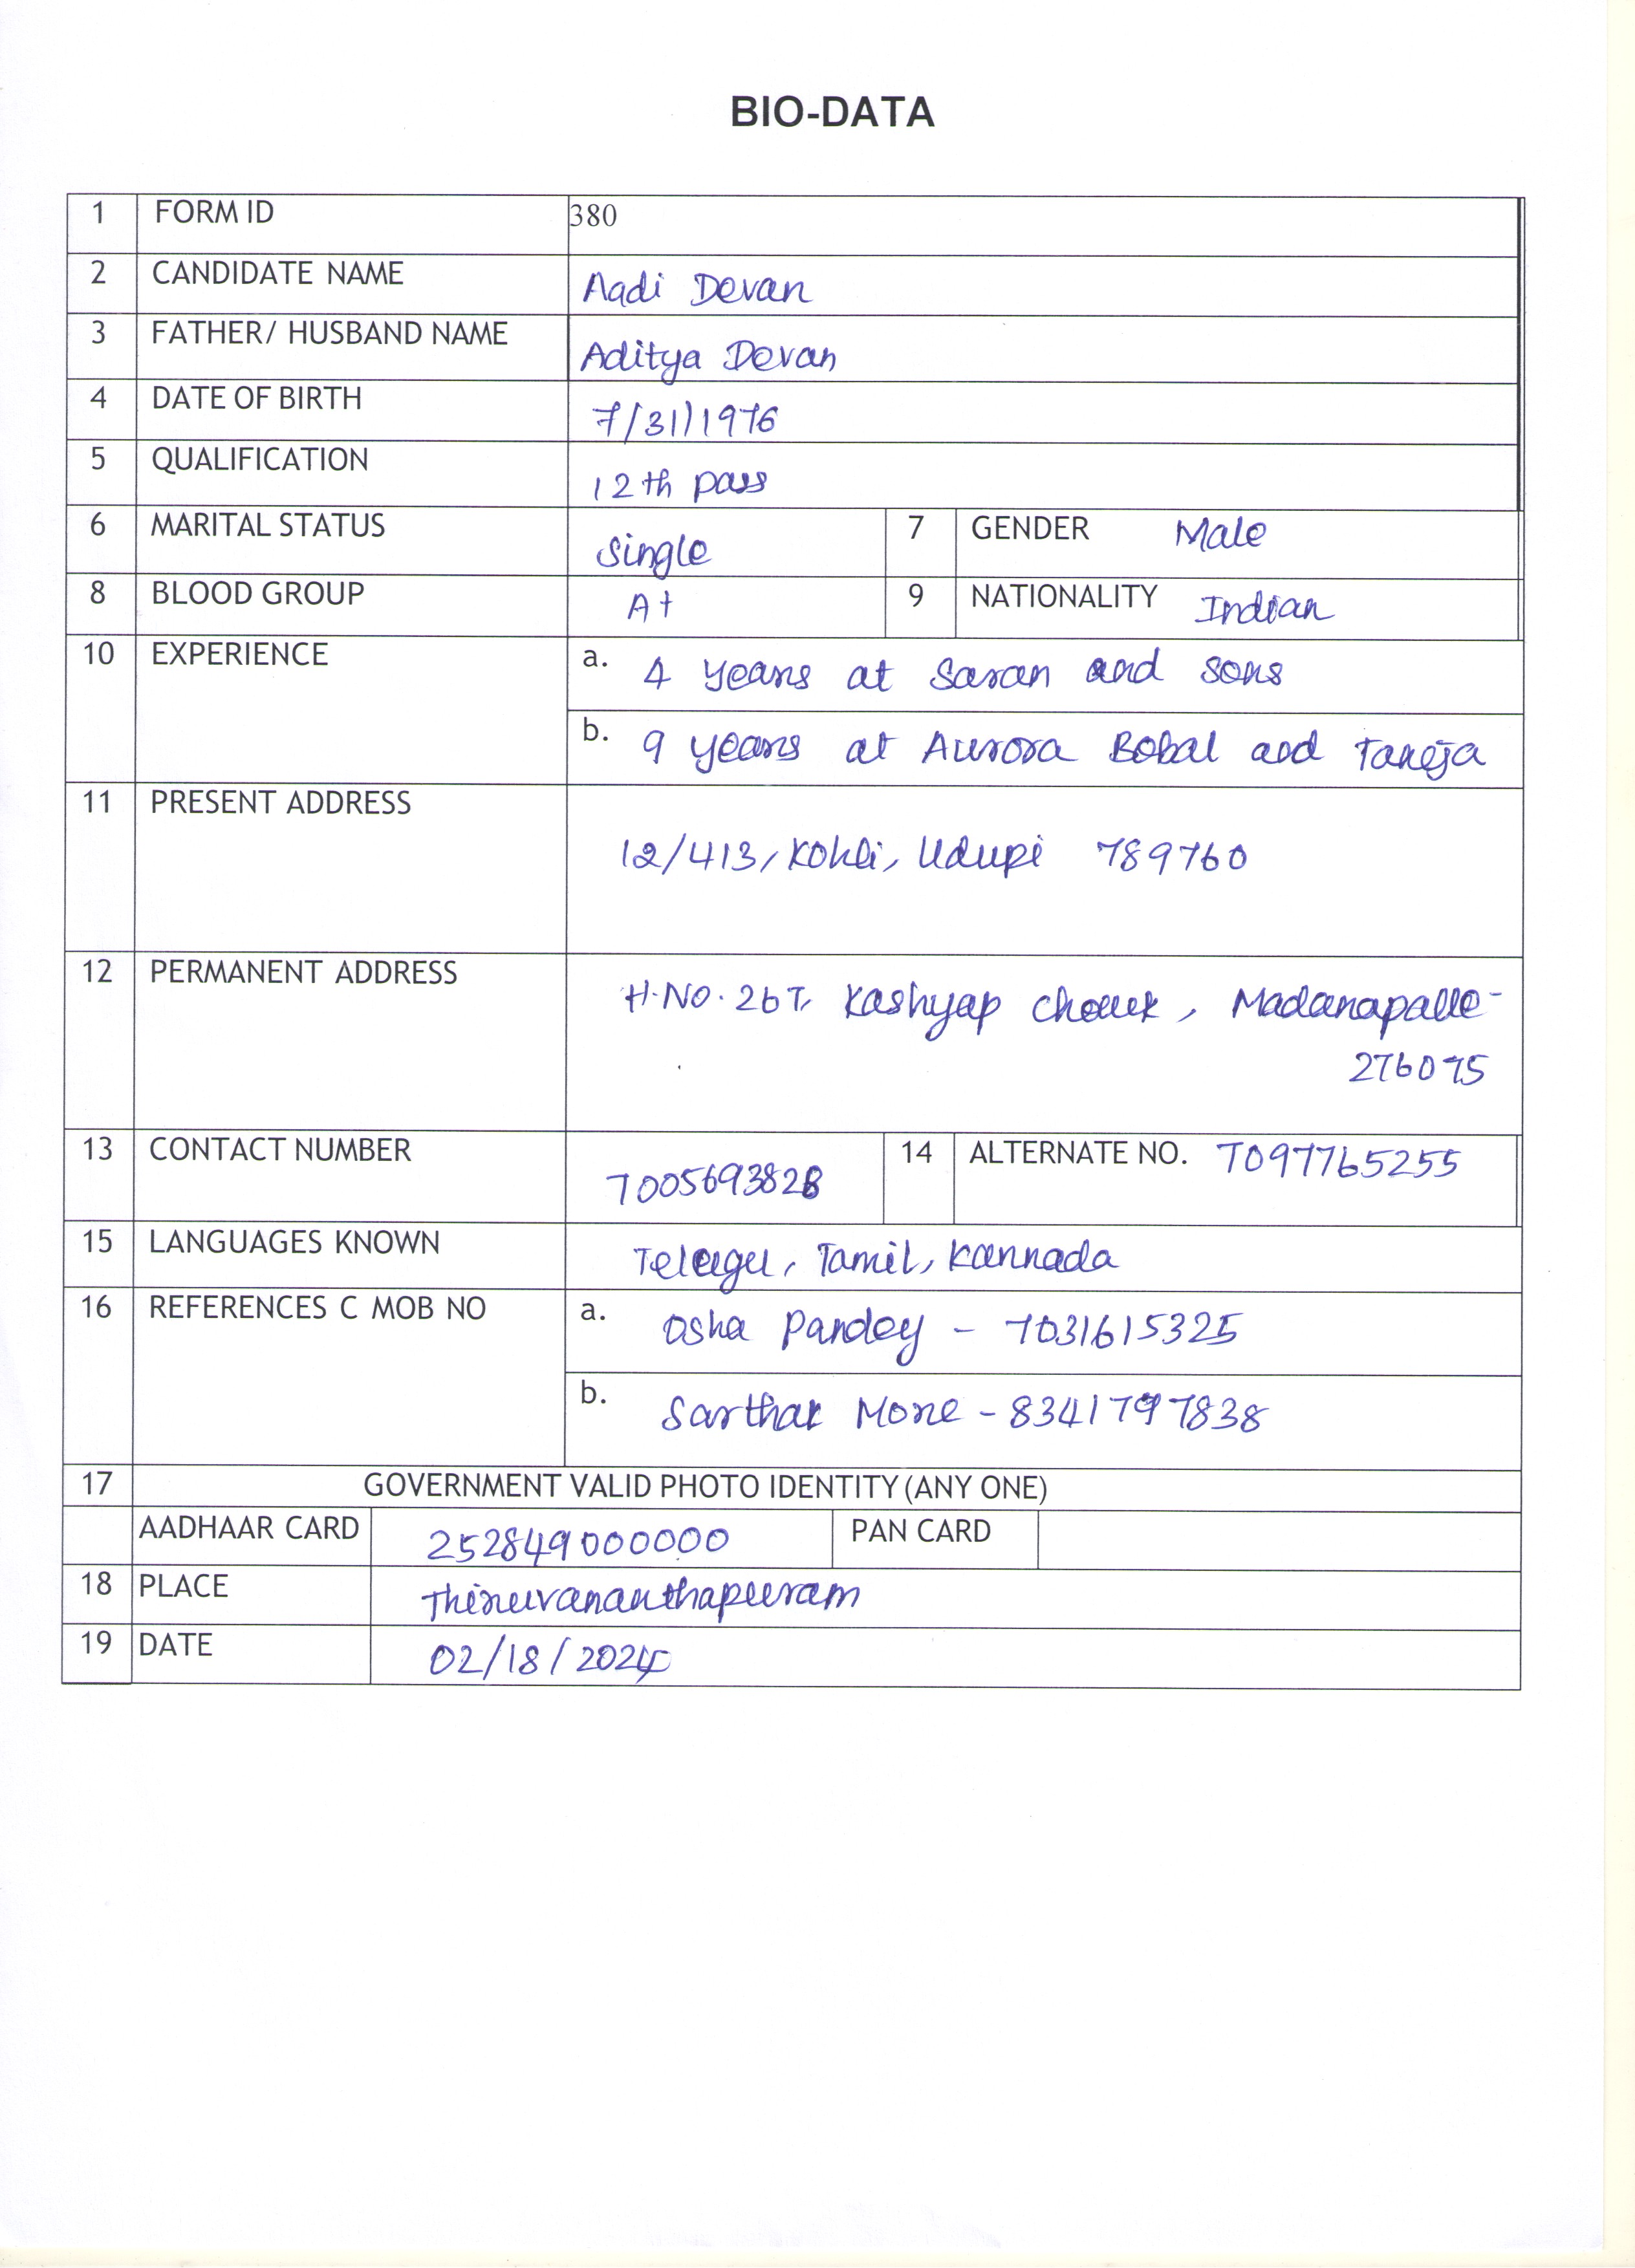 BIO-DATA
1 FORM ID 380
2 CANDIDATE NAME Aadi Devan
3 FATHER/ HUSBAND NAME Aditya Devan
4 DATE OF BIRTH 7/31/1976
5 QUALIFICATION 12th pass
6 MARITAL STATUS Single 7 GENDER Male
8 BLOOD GROUP A+ 9 NATIONALITY Indian
10 EXPERIENCE a. 4 years at Saran and sons
b. 9 years at Aurora Bobal and Taneja
11 PRESENT ADDRESS 12/413, Kohli, Udupi 789760
12 PERMANENT ADDRESS H.NO. 267, Kashyap Chowk, Madanapalle-
276075
13 CONTACT NUMBER 7005693828 14 ALTERNATE NO. 7097765255
15 LANGUAGES KNOWN Telugu, Tamil, Kannada
16 REFERENCES C MOB NO a. Osha Pandey - 7031615325
b. Sarthak More - 8341797838
17 GOVERNMENT VALID PHOTO IDENTITY (ANY ONE)
AADHAAR CARD 252849000000 PAN CARD
18 PLACE Thiruvananthapuram
19 DATE 02/18/2024